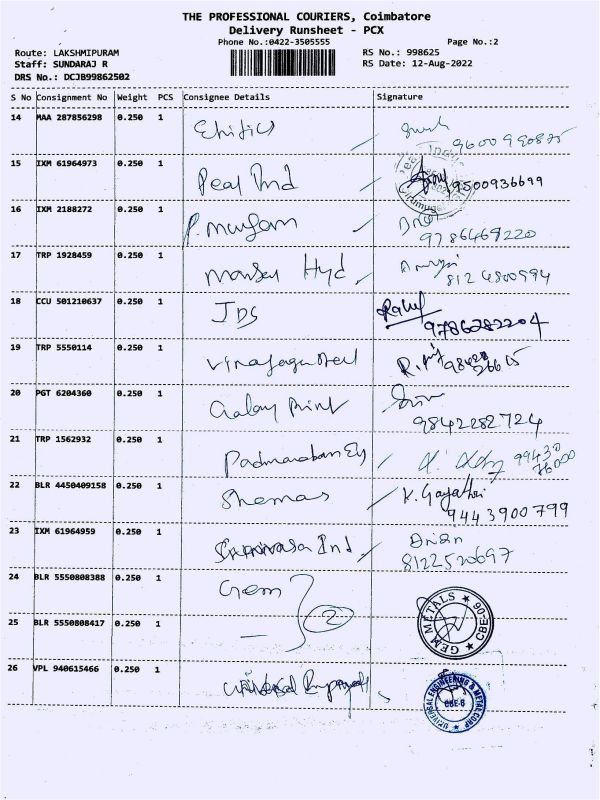 THE PROFESSIONAL COURIERS, Coimbatore
Delivery Runsheet - PCX
Phone No.:0422-3505555 Page No.:2
Route: LAKSHMIPURAM RS No.: 998625
Staff: SUNDARAJ R RS Date: 12-Aug-2022
DRS No.: DCJB99862502
S No Consignment No Weight PCS Consignee Details Signature
14 MAA 287856298 0.250 1
15 IXM 61964973 0.250 1 9500936699
16 IXM 2188272 0.250 1 9786469220
17 TRP 1928459 0.250 1 Hyd
18 CCU 501210637 0.250 1 JDS Rahul
9786282204
19 TRP 5550114 0.250 1
20 PGT 6204360 0.250 1 Print
9842282724
21 TRP 1562932 0.250 1 Padmanaban 99430
76000
22 BLR 4450409158 0.250 1 Shemas K. Gayathri
9443900799
23 IXM 61964959 0.250 1 Srinivasa Ind
8122520697
24 BLR 5550808388 0.250 1 Gem
2
25 BLR 5550808417 0.250 1 GEM METALS CBE-
26 VPL 940615466 0.250 1 Universal UNIVERSAL ENGINEERING & METAL CORP
CBE-6